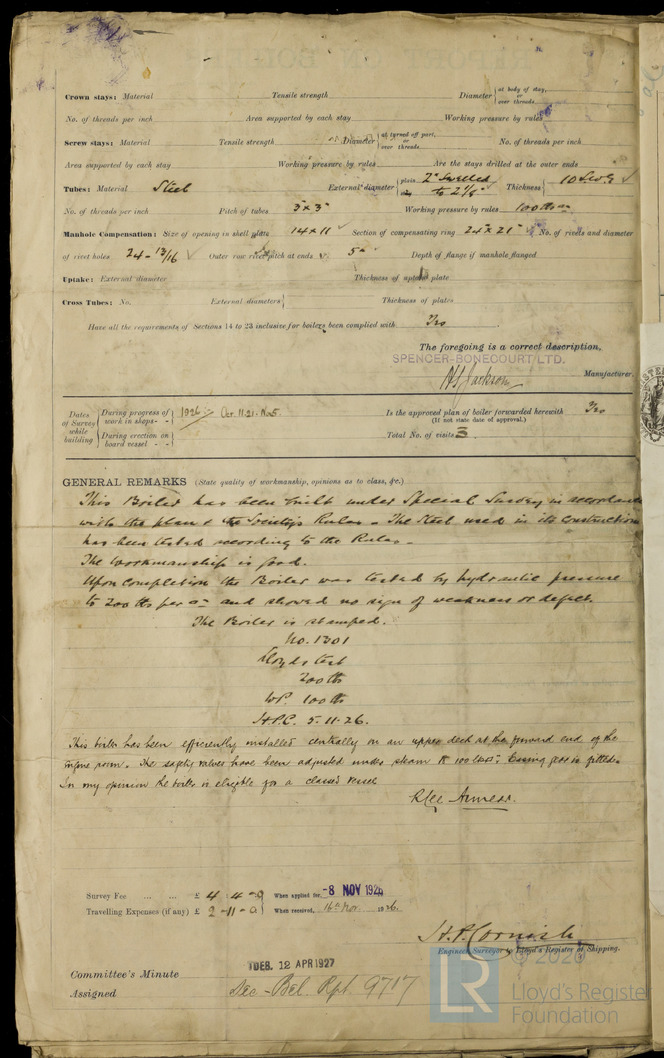 Crown stays: Material Tensile strength Diameter at body of stay, or over threads.
No. of threads per inch Area supported by each stay Working pressure by rules
Screw stays: Material Tensile strength Diameter at turned off part, or over threads. No. of threads per inch
Area supported by each stay Working pressure by rules Are the stays drilled at the outer ends
Tubes: Material Steel External diameter plain 2" Swelled to 2 1/8" Thickness
No. of threads per inch Pitch of tubes 3" x 3" Working pressure by rules 100 lbs
Manhole Compensation: Size of opening in shell plate 14 x 11 Section of compensating ring 24" x 21" No. of rivets and diameter
of rivet holes 24 - 13/16 Outer row rivet pitch at ends 5" Depth of flange if manhole flanged
Uptake: External diameter Thickness of uptake plate
Cross Tubes: No. External diameters Thickness of plates
Have all the requirements of Sections 14 to 23 inclusive for boilers been complied with Yes
The foregoing is a correct description,
SPENCER-BONECOURT LTD.
Jackson Manufacturer.
Dates of Survey while building
During progress of work in shops - - 1926 Oct. 11. 21. Nov 5.
During erection on board vessel - -
Is the approved plan of boiler forwarded herewith Yes
(If not state date of approval.)
Total No. of visits 3
GENERAL REMARKS (State quality of workmanship, opinions as to class, &c.)
This Boiler has been built under Special Survey in accordance
with the plan & the Society's Rules. The Steel used in its construction
has been tested according to the Rules.
The workmanship is good.
Upon completion the Boiler was tested by hydraulic pressure
to 200 lbs per □" and showed no sign of weakness or defect.
The Boiler is stamped.
No. 1301
Lloyds test
200 lbs
WP. 100 lbs
H.P.C. 5.11.26.
This boiler has been efficiently installed centrally on an upper deck at the forward end of the
engine room. The safety valves have been adjusted under steam to 100 lbs. Easing gear is fitted.
In my opinion the boiler is eligible for a classed vessel
Survey Fee ... ... £ 4 : 4 : 0 When applied for, -8 NOV 1926
Travelling Expenses (if any) £ 2 - 11 - 0 When received, 16th Nov. 1926.
H.P. Cornish
Engineer Surveyor to Lloyd's Register of Shipping.
Committee's Minute TUES. 12 APR 1927
Assigned Dec - Bel. Rpt 9717
© 2026
LR Lloyd's Register Foundation